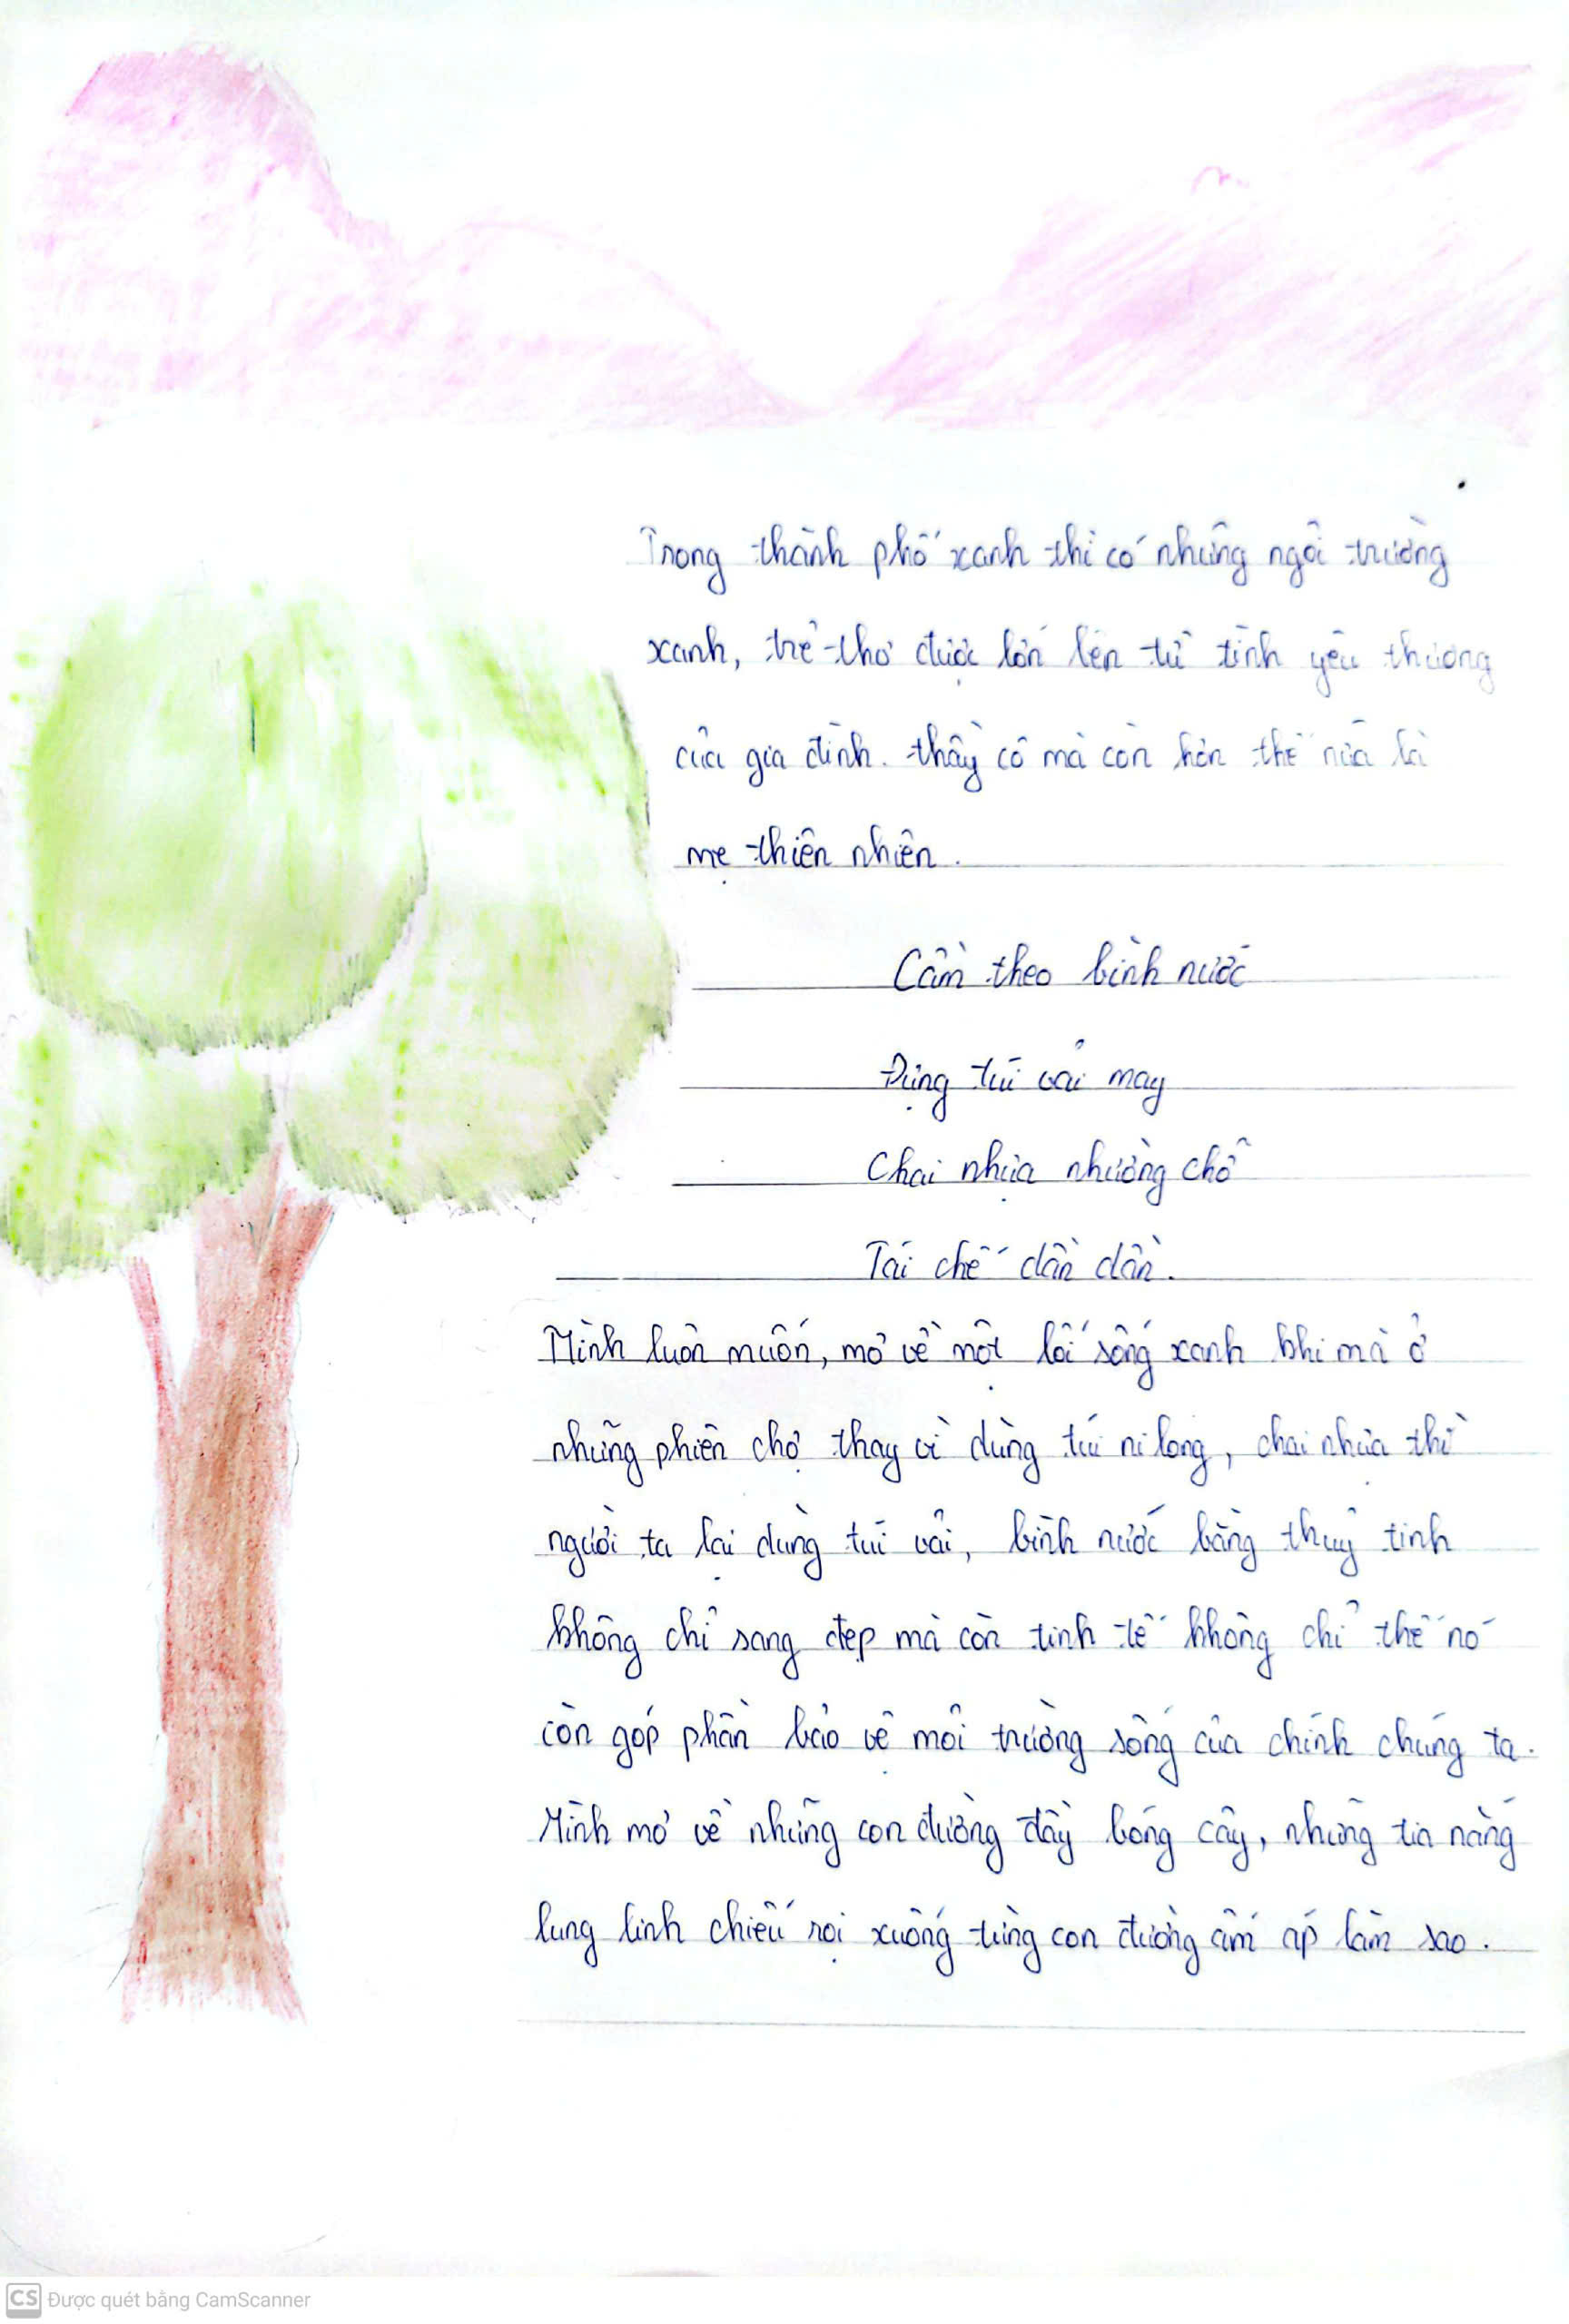 Trong thành phố xanh thì có những ngôi trường
xanh, trẻ thơ được lớn lên từ tình yêu thương
của gia đình. thầy cô mà còn hơn thế nữa là
mẹ thiên nhiên.
Cầm theo bình nước
Đựng túi vải may
Chai nhựa nhường chỗ
Tái chế dần dần.
Mình luôn muốn, mơ về một lối sống xanh khi mà ở
những phiên chợ thay vì dùng túi ni long, chai nhựa thì
người ta lại dùng túi vải, bình nước bằng thuỷ tinh
không chỉ sang đẹp mà còn tinh tế không chỉ thế nó
còn góp phần bảo vệ môi trường sống của chính chúng ta.
Mình mơ về những con đường đầy bóng cây, những tia nắng
lung linh chiếu rọi xuống từng con đường ấm áp làm sao.
CS Được quét bằng CamScanner